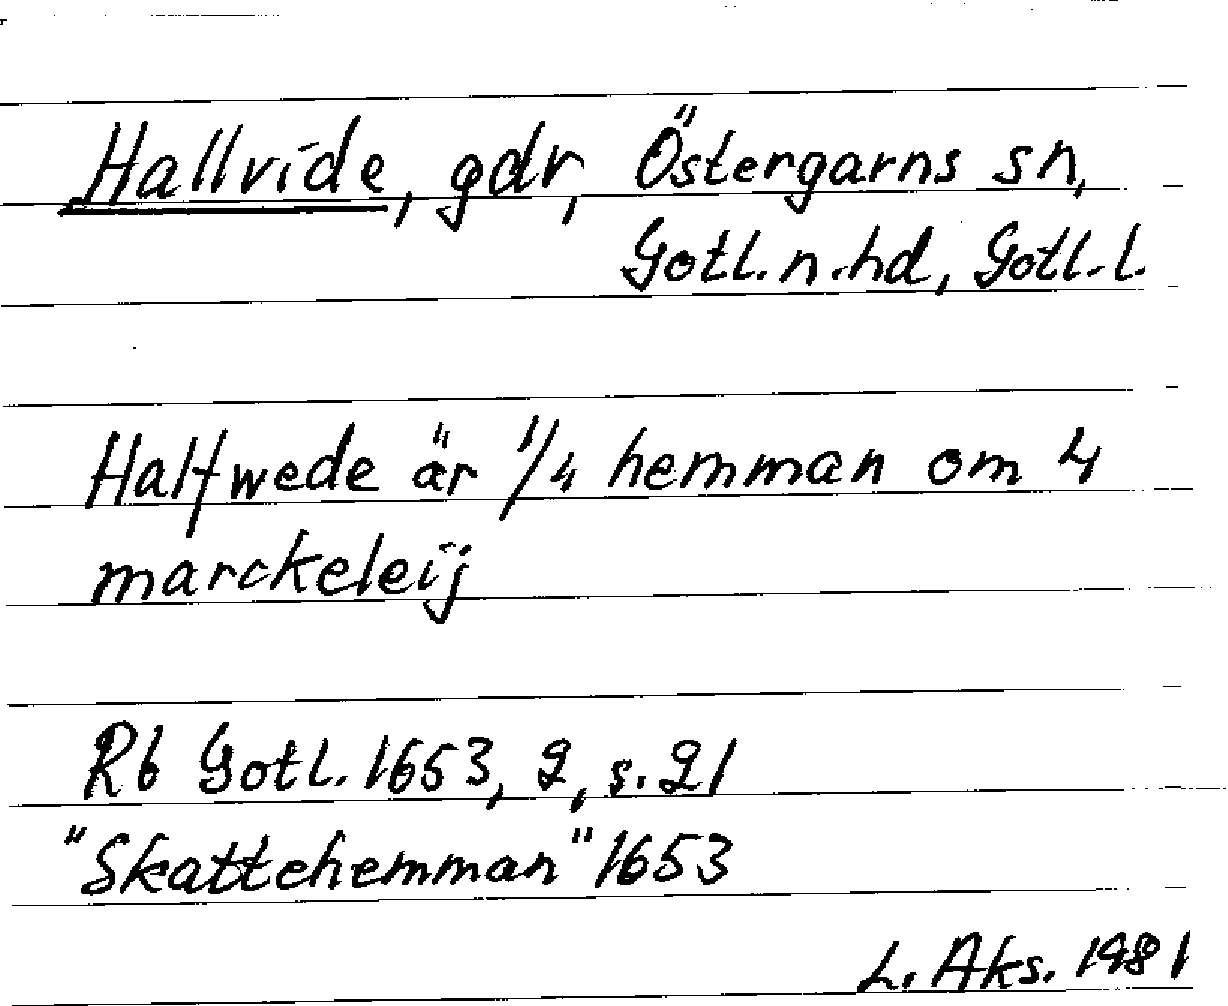 Hallvide, gdr, Östergarns sn,
Gotl. n. hd, Gotl. l.
Halfwede är 1/4 hemman om 4
marckeleij
Rb Gotl. 1653, 2, s. 21
"Skattehemman" 1653
L. Aks. 1981